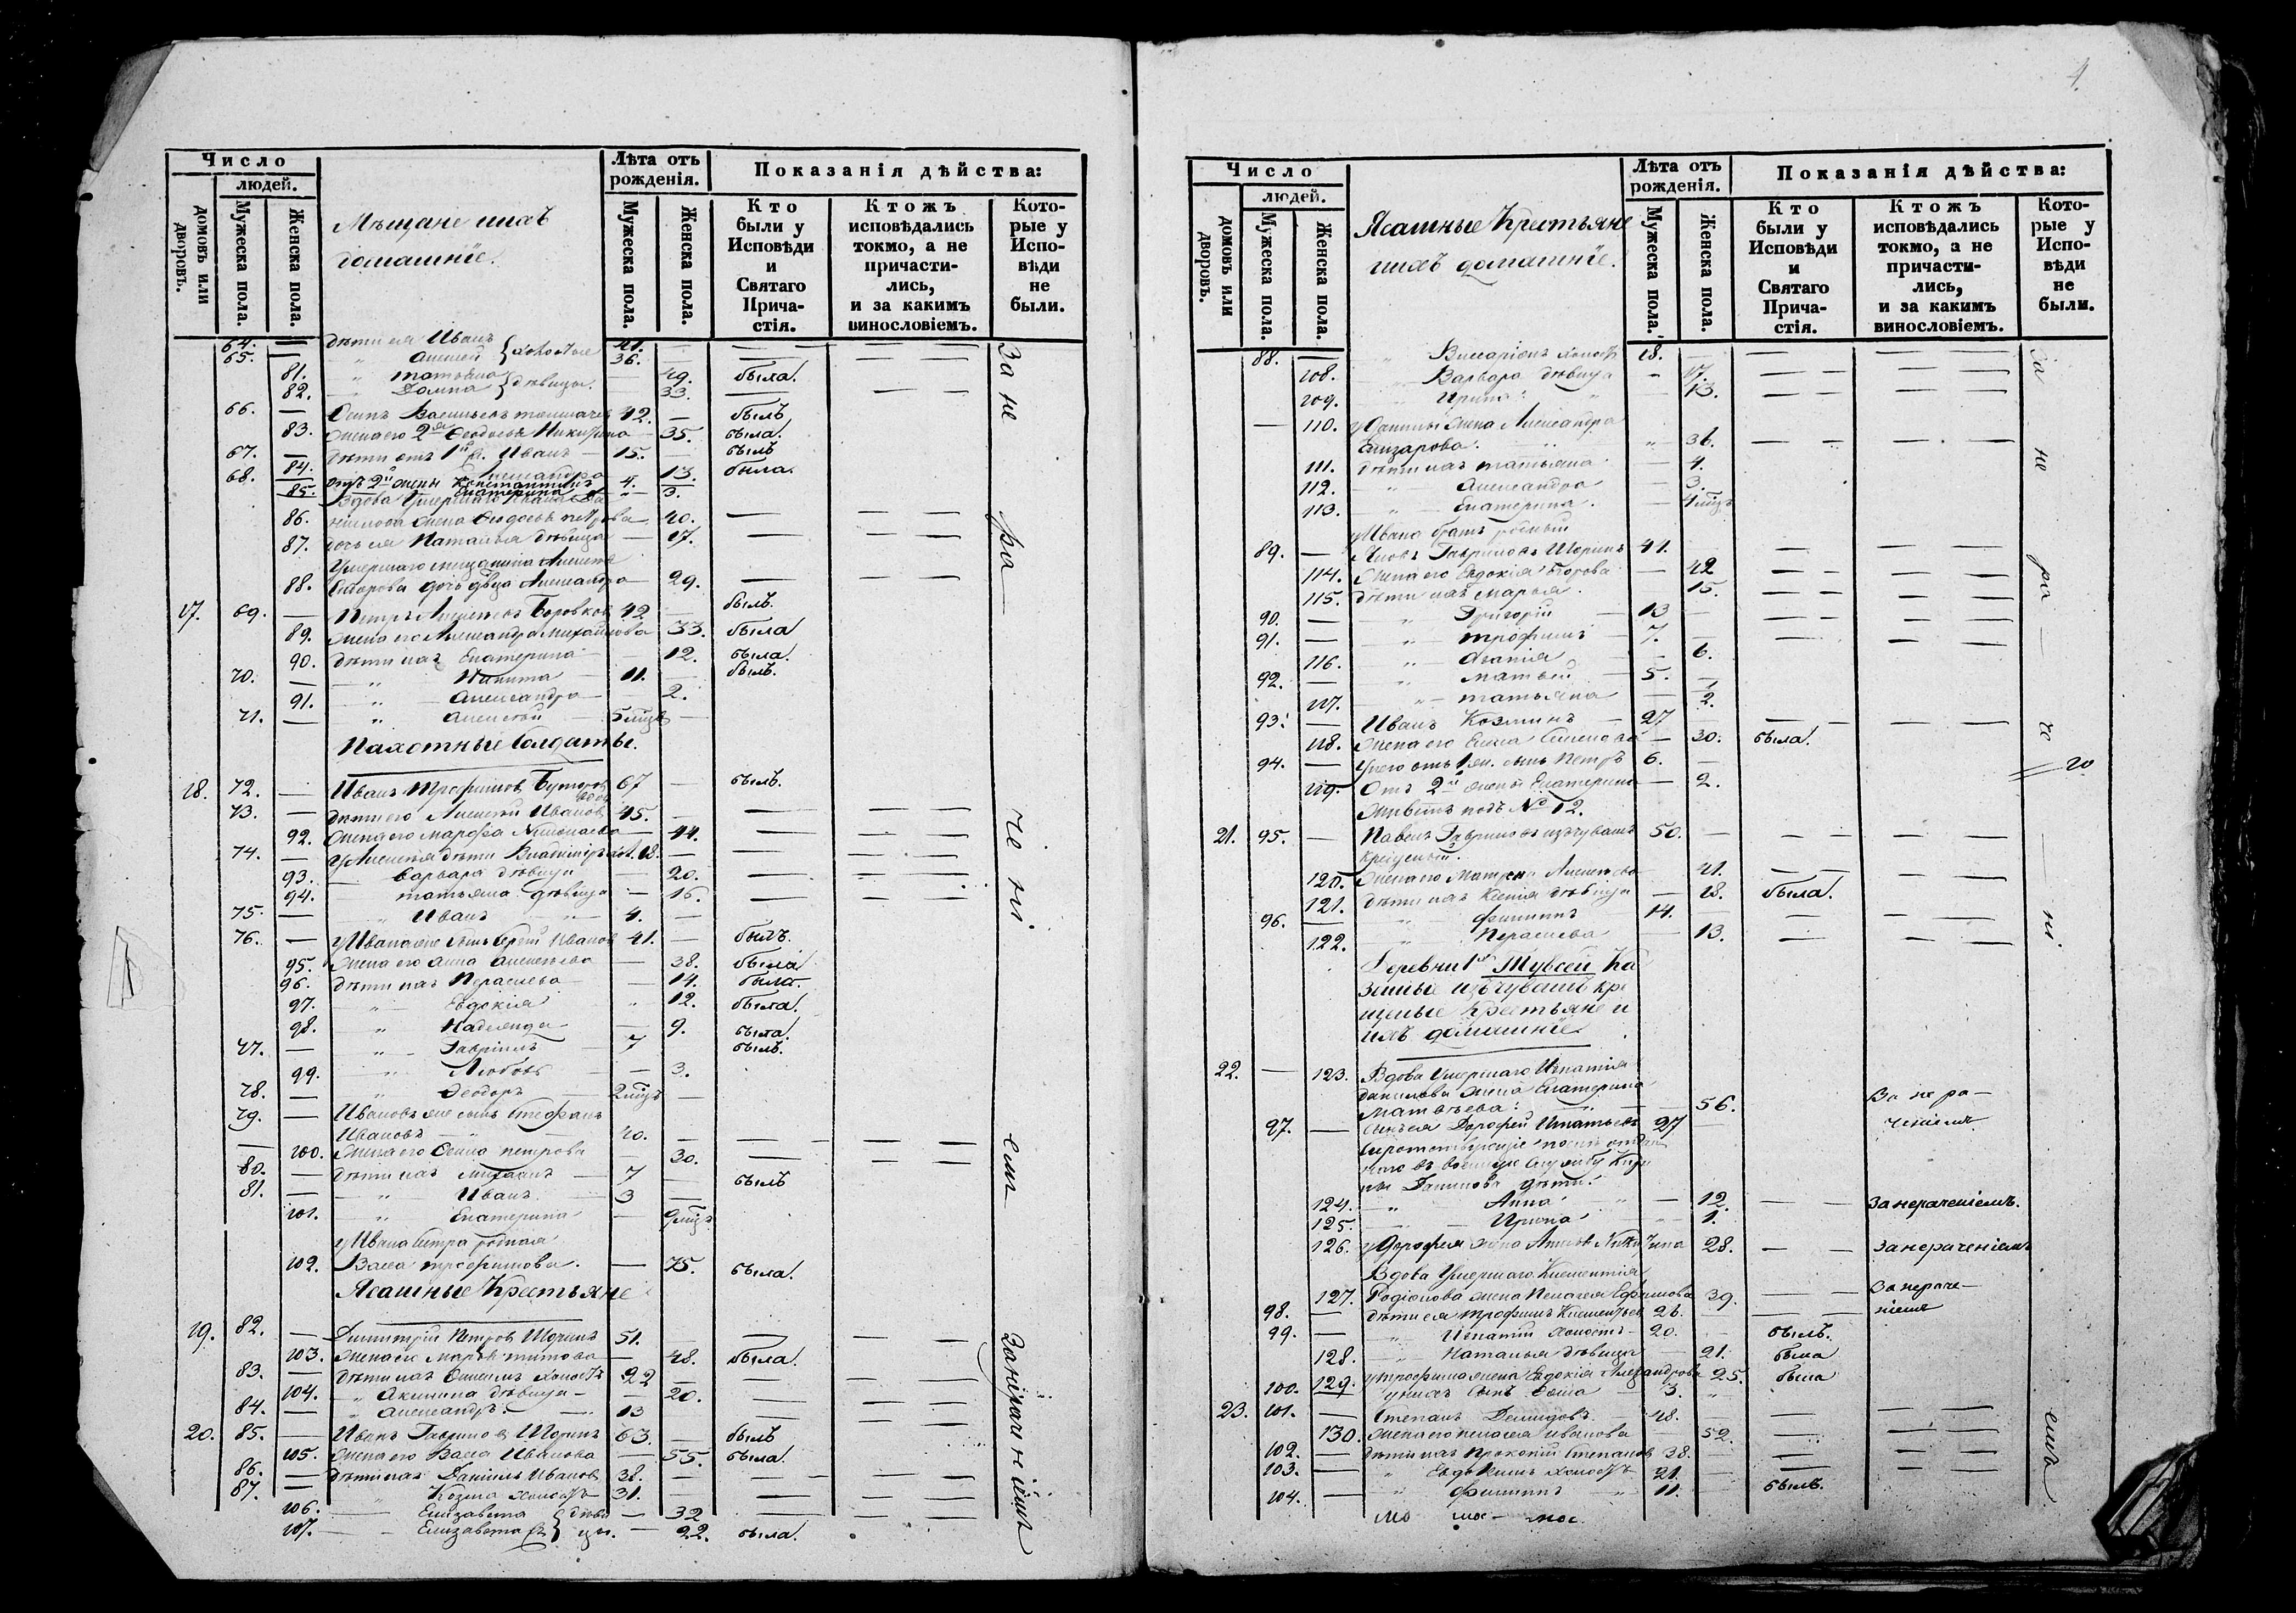 Число
людей.
домовъ или дворовъ.
Мужеска пола.
Женска пола.
Мѣщане ихъ
домашніе.
Лѣта отъ рожденія.
Мужеска пола.
Женска пола.
Показанія дѣйства:
Кто были у Исповѣди и Святаго Прича- стія.
Ктожъ исповѣдались токмо, а не причасти- лись, и за какимъ винословіемъ.
Кото- рые у Испо- вѣди не были.
64. — дѣти ея Иванъ 41. —
65. — " Алексѣй } холостые 36.
81. " Татьяна — 49. была.
82. " Домна } дѣвицы. — 33.
66. — Осипъ Васильевъ 42. — былъ
83. Жена его 2я Ѳеодосья Никитина — 35. была.
67. — дѣти отъ 1й ж. Иванъ — 15. — былъ
84. Александра 13. была.
68. отъ 2й жены Константинъ 4.
85. Екатерина " 3.
Вдова Умершаго Ивана
86. жена Ѳеодосья Петрова 40. —
87. дочь ея Наталья дѣвица — 17. —
Умершаго мещанина Алексѣя
88. дочь дѣвица Александра 29. —
17. 69. — Петръ Алексѣевъ Боровковъ 42 — былъ.
89. Жена его Александра Михайлова 33. была
90. дѣти ихъ Екатерина — 12. была.
70. — " Никита 11. — былъ.
91. " Александра — 2.
71. — " Алексѣй — 5 мцъ —
Пахотные Солдаты.
18. 72. — Иванъ Трофимовъ вдовъ 67 — былъ.
73. — дѣти его Алексѣй Ивановъ 45. —
92. Жена его Марфа Николаева — 44. —
74. — у Алексѣя дѣти Владиміръ хол. 18. —
93. — Варвара дѣвица — 20. —
94. — Татьяна дѣвица — 16. —
75. — " Иванъ " — 4. —
76. — у Ивана же сынъ Сергѣй Ивановъ 41. — былъ.
95. Жена его Анна Алексѣева — 38. была
96. дѣти ихъ Параскева — 14. была.
97. — " — Евдокія " 12. была.
98. " Надежда — 9. была.
77. — " — Гавріилъ — 7 былъ.
99. — " Любовь — 3.
78. — " Ѳеодоръ — 2 мцъ —
79. — Ивановъ же сынъ Стефанъ
Ивановъ — 40. —
100. Жена его Петрова 30. —
80. — дѣти ихъ Михаилъ — 7 — былъ
81. — " Иванъ. 3 —
101. — " Екатерина — 9 мцъ
у Ивана Сестра родная
102. Васса Трофимова. — 75. была.
Ясашные Крестьяне
19. 82. — Димитрій Петровъ Шоринъ 51. —
103. Жена его Марѳа Титова — 48. была.
83. — дѣти ихъ холостъ 22 —
104. — " Акилина дѣвица — 20. —
84. — " Александръ. 13 —
20. 85. — Иванъ Гавриловъ Шоринъ 63. — былъ
105. Жена его Васса Иванова — 55. была.
86. — дѣти ихъ Даніилъ Ивановъ 38. —
87. — " Козма холостъ 31. —
106. — Елизавета — 32 —
107. — Елизавета } дѣвицы. — 22. была.
За не ра— че ні емъ
За нераченіемъ
4.
Число
людей.
домовъ или дворовъ.
Мужеска пола.
Женска пола.
Ясашные Крестьяне
ихъ домашніе.
Лѣта отъ рожденія.
Мужеска пола.
Женска пола.
Показанія дѣйства:
Кто были у Исповѣди и Святаго Прича- стія.
Ктожъ исповѣдались токмо, а не причасти- лись, и за какимъ винословіемъ.
Кото- рые у Испо- вѣди не были.
88. — " Виссаріонъ холостъ 18. —
108. " Варвара дѣвица " 17. —
109. " Ирина. " — 13. —
— 110. у Даніила Жена Александра
Елизарова. " 36. —
111. дѣти ихъ Татьяна — 4.
112. — " Александра — 3.
113. — " Екатерина. — 4 мцъ
у Ивана братъ родный
89. — Яковъ Гавриловъ Шоринъ 41. —
114. Жена его Евдокія Егорова — 42 —
115. дѣти ихъ Марья. 15. —
90. — " Григорій — 13 —
91. — " Трофимъ — 7. —
116. — " Агапія — 6.
92. — " Матвѣй — 5. —
117. — " Татьяна — 2.
93. — Иванъ Козминъ — 27 —
118. Жена его Елена Семенова — 30. была.
94. — У него отъ 1 ж. сынъ Петръ 6. —
119. Отъ 2й жены Екатерина — 2.
Живетъ подъ № 12.
21. 95. — Павелъ Гавриловъ изъ чувашъ 50. —
крещеный.
120. Жена его Матрена Алексѣева 41. —
121. дѣти ихъ Ксенія дѣвица — 18. была.
96. — " Филиппъ — 14. —
122. " Параскева — 13. —
Деревни 1й Мувсей Ка
зенные изъ чувашъ кре
щеные Крестьяне и
ихъ домашніе.
22. — 123. Вдова Умершаго Игнатія
Данилова жена Екатерина
Матвѣева. " — 56. За не ра—
97. — Сынъ ея Дорофей Игнатьевъ 27 — ченіемъ.
124. " Анна " — 12. — За нераченіемъ.
125. — Ирина " 1.
126. у Дорофея жена Никитина 28. — За нераченіемъ
Вдова Умершаго Климентія
127. Родіонова жена Пелагея Ефимова 39. — За нераче—
98. — дѣти ея Трофимъ Климентьевъ 26. — ніемъ
99. — " Игнатій холостъ — 20. — былъ.
128. — " Наталья дѣвица — 21. была
129. у Трофима жена Евдокія Александрова 25. была
100. — у нихъ Сынъ — 3. "
23. 101. — Степанъ Демидовъ. 48. —
130. Жена его Пелагея Иванова — 52. —
102. — дѣти ихъ Прокопій Степановъ 38. —
103. — " холостъ 21. —
104. — " Филиппъ " 11. — былъ.
За не ра — че — ні емъ